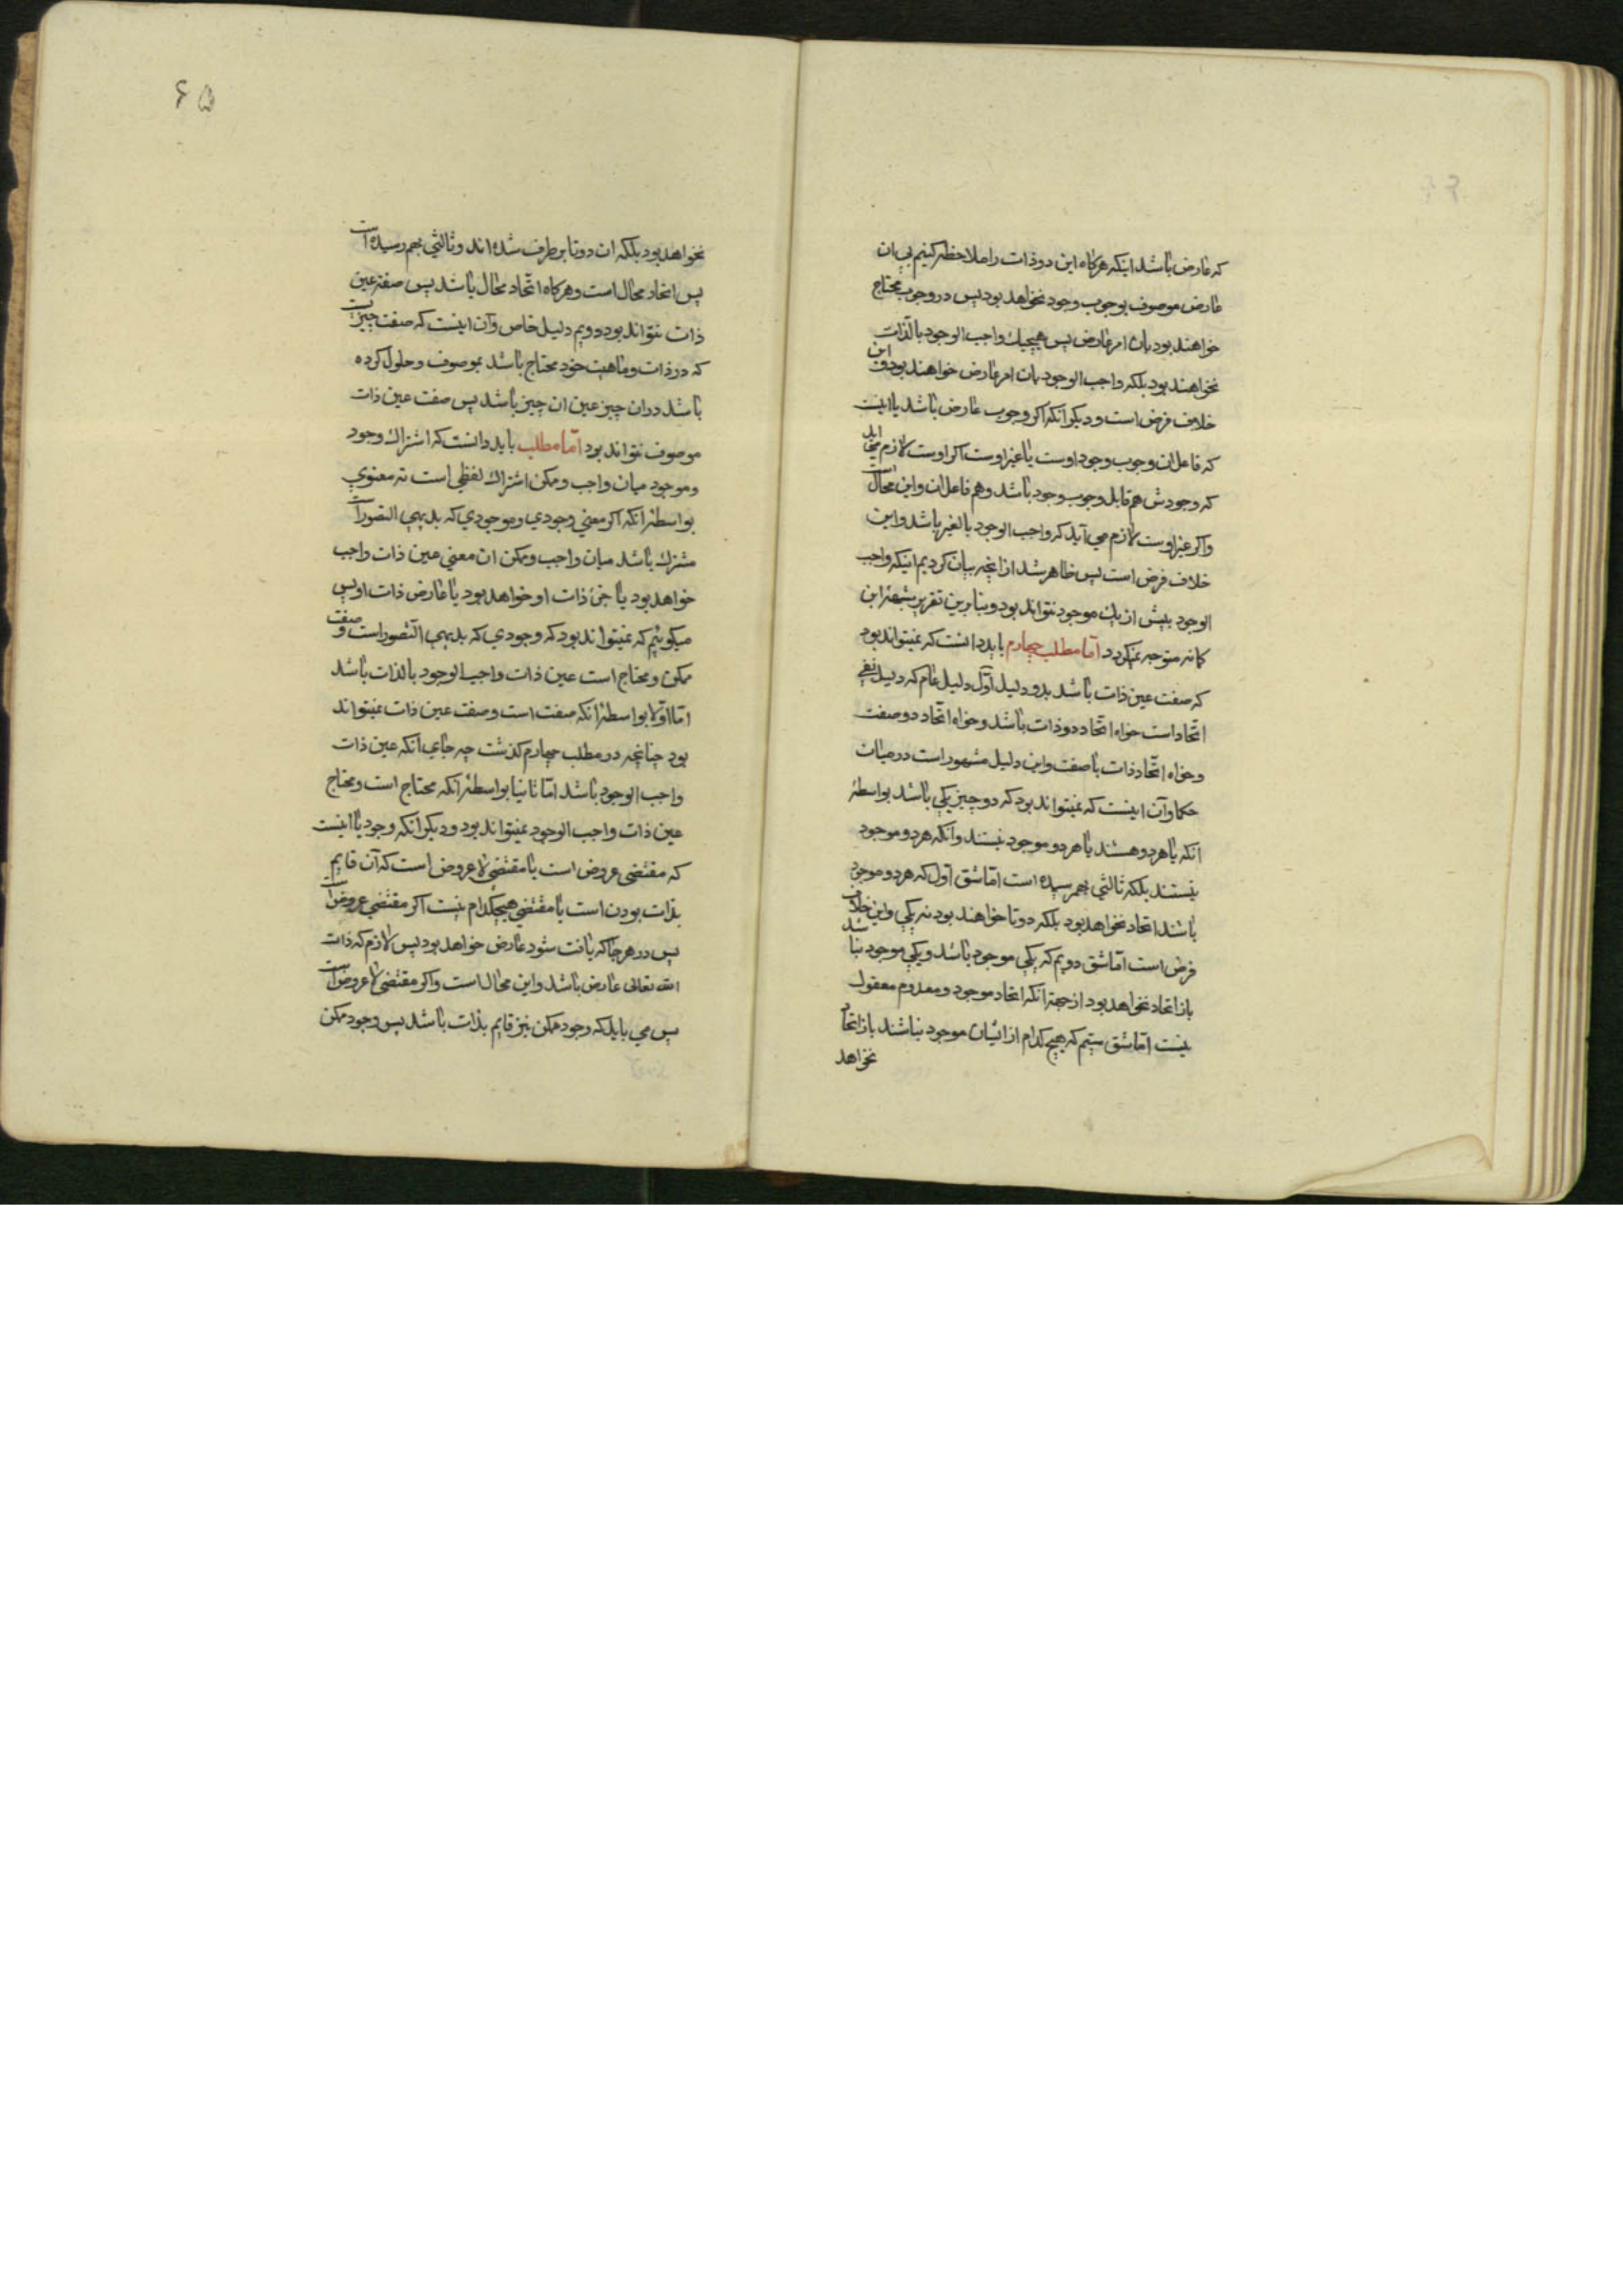 که عارض باشد اینکه هرکاه این دو ذات را ملاحظه کنیم بی ان
عارض موصوف بوجوب وجود نخواهد بود پس در وجوب محتاج
خواهند بود بان امر عارض پس هیچیك واجب الوجود بالذات
نخواهند بود بلکه واجب الوجود بان امر عارض خواهند بود و این
خلاف فرض است و دیکر آنکه اکر وجوب عارض باشد یا اینست
که فاعل ان وجوب وجود اوست یا غیر اوست اکر اوست لازم می اید
که وجودش هم قابل وجوب وجود باشد و هم فاعل ان و این محال است
و اکر غیر اوست لازم می آید که واجب الوجود بالغیر باشد و این
خلاف فرض است پس ظاهر شد از انچه بیان کردیم اینکه واجب
الوجود بیش از یك موجود نتواند بود و بنابرین تقریر شبههٔ ابن
کمانه متوجه نمیکردد امّا مطلب چهارم باید دانست که نمیتواند بود
که صفت عین ذات باشد بدو دلیل اوّل دلیل عام که دلیل نفی
اتّحاد است خواه اتحاد دو ذات باشد و خواه اتّحاد دو صفت
و خواه اتّحاد ذات با صفت و این دلیل مشهور است در میان
حکما و آن اینست که نمیتواند بود که دو چیز یکی باشد بواسطهٔ
انکه یا هر دو هستند یا هر دو موجود نیستند و انکه هر دو موجود
نیستند بلکه ثالثی بهم رسیده است امّا شق اوّل که هر دو موجود
باشند اتحاد نخواهد بود بلکه دو تا خواهند بود نه یکی و این خلاف
فرض است امّا شق دویم که یکی موجود باشد و یکی موجود نباشد
باز اتحاد نخواهد بود از جهة انکه اتحاد موجود و معدوم معقول
نیست امّا شق سیّم که هیچ کدام از ایشان موجود نباشند باز اتحاد
نخواهد
۶۵
نخواهد بود بلکه ان دو تا بر طرف شده اند و ثالثی بهم رسیده است
پس اتحاد محال است و هرکاه اتّحاد محال باشد پس صفة عین
ذات نتواند بود دویم دلیل خاص و آن اینست که صفت چیزیست
که در ذات و ماهیت خود محتاج باشد بموصوف و حلول کرده
باشد در ان چیز عین ان چیز باشد پس صفت عین ذات
موصوف نتواند بود امّا مطلب باید دانست که اشتراك وجود
و موجود میان واجب و ممکن اشتراك لفظی است نه معنوی
بواسطهٔ انکه اکر معنی وجودی و موجودی که بدیهی التصور است
مشترك باشد میان واجب و ممکن ان معنی عین ذات واجب
خواهد بود یا جزء ذات او خواهد بود یا عارض ذات او پس
میکوئیم که نمیتواند بود که وجودی که بدیهی التّصور است و صفت
ممکن و محتاج است عین ذات واجب الوجود بالذات باشد
امّا اوّلا بواسطهٔ انکه صفت است و صفت عین ذات نمیتواند
بود چنانچه در مطلب چهارم کذشت چه جای انکه عین ذات
واجب الوجود باشد امّا ثانیا بواسطهٔ آنکه محتاج است و محتاج
عین ذات واجب الوجود نمیتواند بود و دیکر انکه وجود یا اینست
که مقتضی عروض است یا مقتضی لا عروض است که آن قایم
بذات بودن است یا مقتضی هیچکدام نیست اکر مقتضی عروض است
پس در هر جا که یافت شود عارض خواهد بود پس لازم که ذات
الله تعالی عارض باشد و این محال است و اکر مقتضی لا عروض است
پس می باید که وجود ممکن نیز قایم بذات باشد پس وجود ممکن